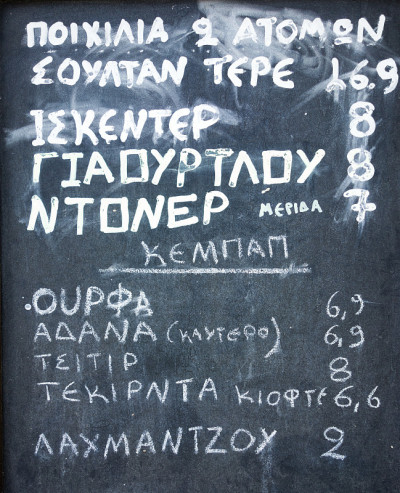 ΠΟΙΚΙΛΙΑ 2 ΑΤΟΜΩΝ
ΣΟΥΛΤΑΝ ΤΕΡΕ 16.9
ΙΣΚΕΝΤΕΡ 8
ΓΙΑΟΥΡΤΛΟΥ 8
ΝΤΟΝΕΡ ΜΕΡΙΔΑ 7
ΚΕΜΠΑΠ
ΟΥΡΦΑ 6,9
ΑΔΑΝΑ (ΚΑΥΤΕΡΟ) 6,9
ΤΣΙΤΙΡ 8
ΤΕΚΙΡΝΤΑ ΚΙΟΦΤΕ 6,6
ΛΑΧΜΑΝΤΖΟΥ 2